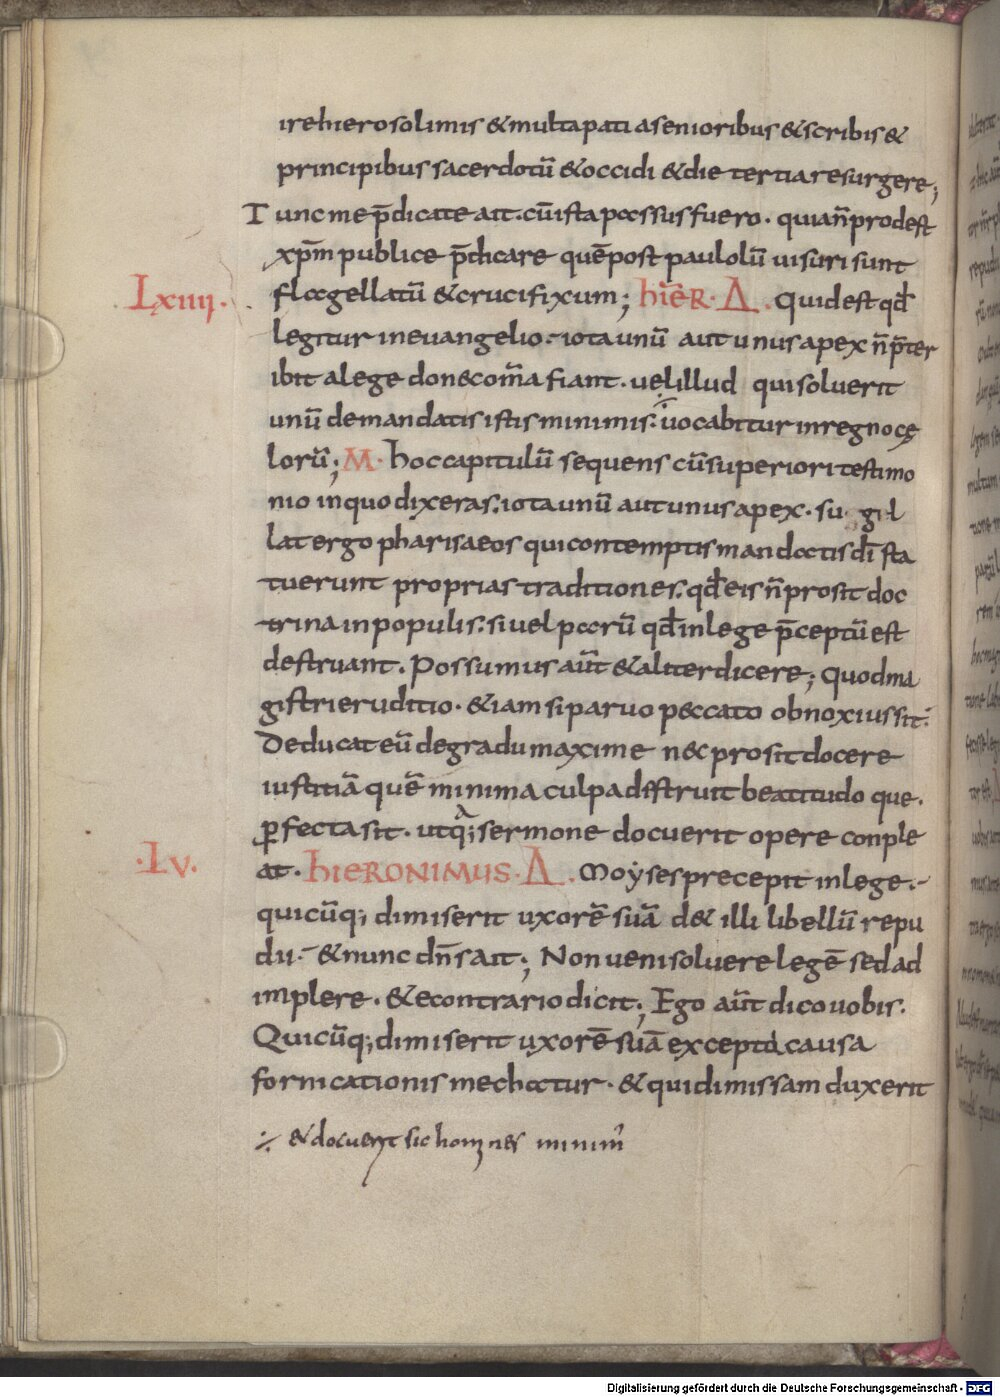 ire hierosolimis & multa pati a senioribus & scribis &
principibus sacerdotū & occidi & die tertia resurgere;
Tunc me p̄dicate ait. cū ista passus fuero. quia n̄ prodest
xp̄m publice p̄dicare quē post paulolū uisuri sunt
Lxiiii. flagellatū & crucifixum; hiēr. Δ. Quid est qđ
legitur in euangelio. iota unū aut unus apex n̄ p̄ter
ibit a lege donec om̄a fiant. uel illud qui soluerit
unū de mandatis istis minimis. uocabitur in regno cę
lorū; M. hoc capitulū sequens cū superiori testimo
nio in quo dixeras. iota unū aut unus apex. su gil
lat ergo pharisaeos qui contemptis mandatis dī sta
tuerunt proprias traditiones. qđ eis n̄ prosit doc
trina in populis. si uel parū qđ in lege p̄ceptū est
destruant. Possumus aūt & aliter dicere; Quod ma
gistri eruditio. & iam si paruo peccato obnoxius sit.
Deducat eū de gradu maxime nec prosit docere
iustitiā quē minima culpa distruit beatitudo que.
ꝑfecta sit. ut q; sermone docuerit opere conple
.Lv. at. hieronimus. Δ. Moyses precepit in lege.
quicūq; dimiserit uxorē suā d& illi libellū repu
dii. & nunc dn̄s ait; Non ueni soluere legē sed ad
implere. & econtrario dicit; Ego aūt dico uobis.
Quicūq; dimiserit uxorē suā excepta causa
fornicationis mechatur. & qui dimissam duxerit
÷ & docuerit sic homines minim᾽